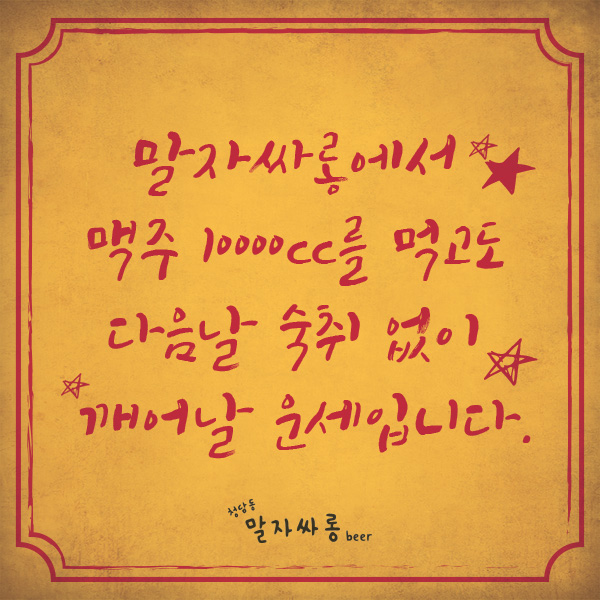 말자싸롱에서
맥주 10000cc를 먹고도
다음날 숙취 없이
깨어날 운세입니다.
청담동
말자싸롱 beer